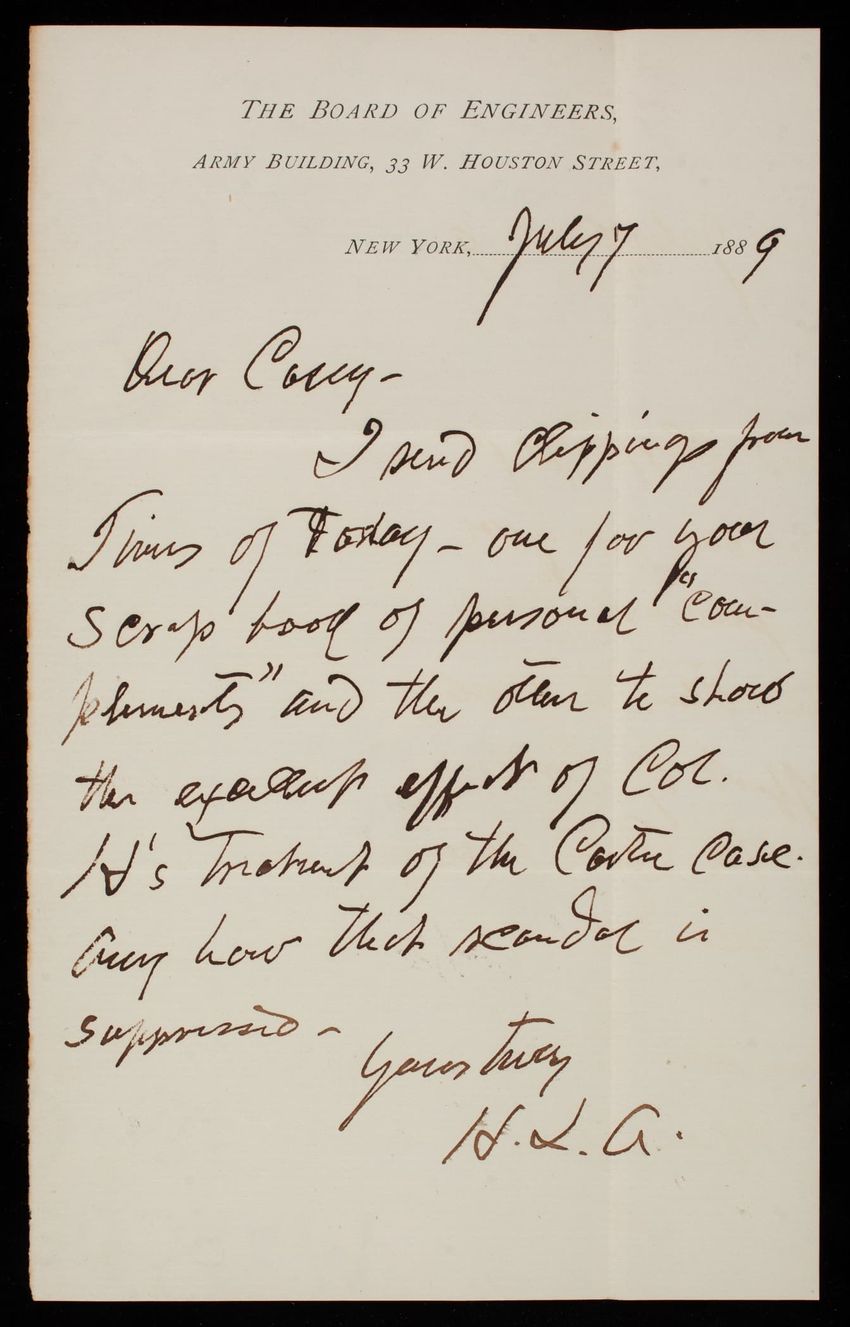 THE BOARD OF ENGINEERS,
ARMY BUILDING, 33 W. HOUSTON STREET,
NEW YORK, July 7 1889
Dear Casey -
I send clippings from
Times of Today - one for your
Scrap book of personal "com-
plements" and the other to show
the excellent effect of Col.
H's treatment of the case.
Any how that scandal is
suppressed -
Yours truly
H. L. A.